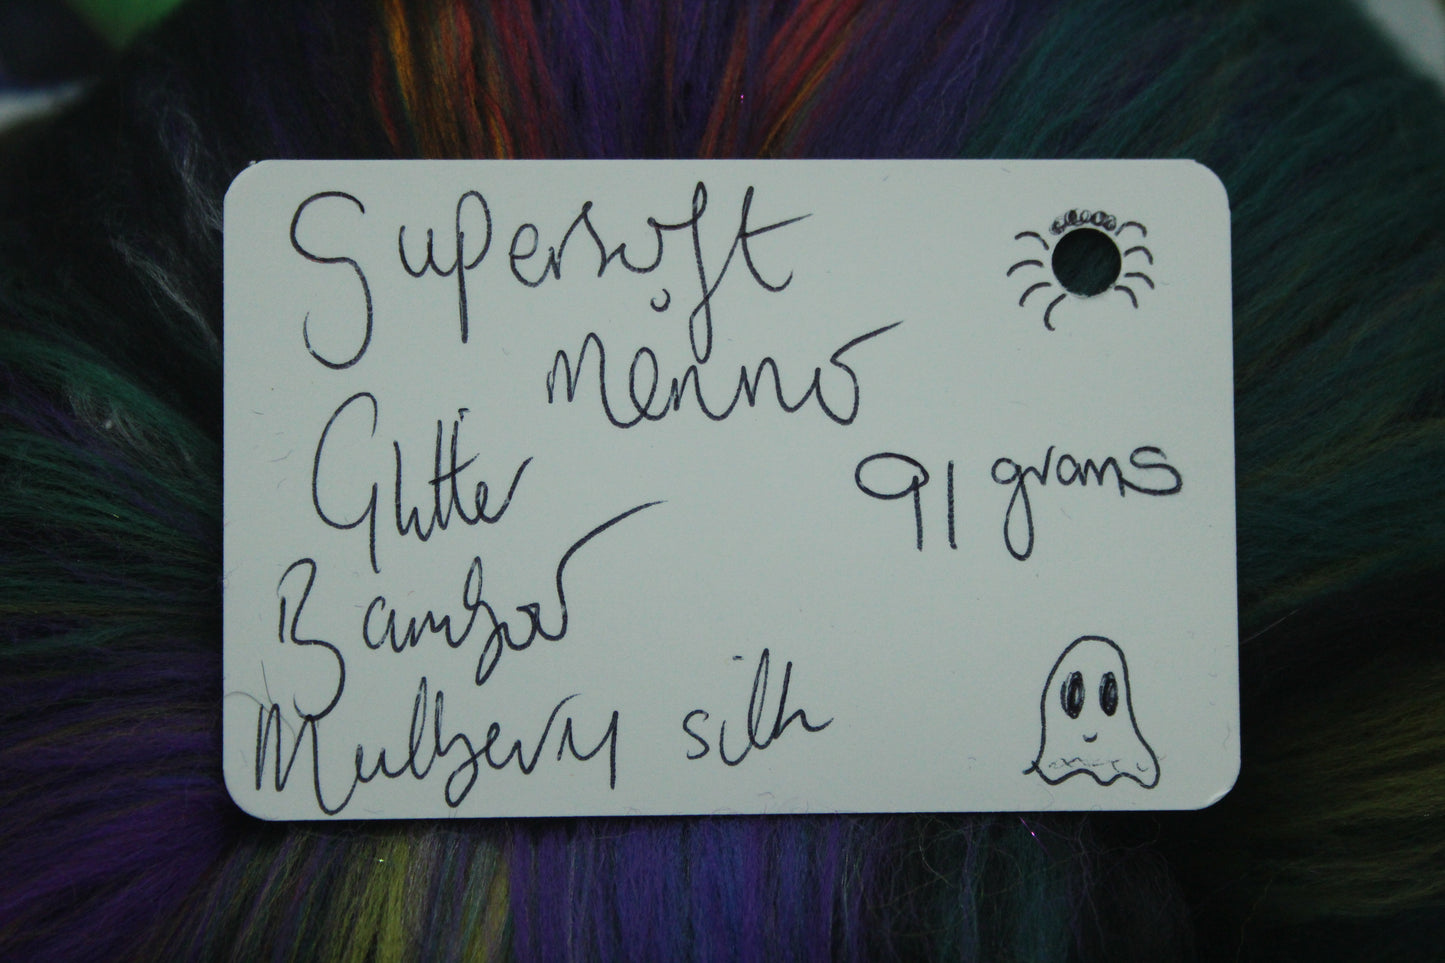 Supersoft
merino
Glitter
91 grams
Bamboo
Mulberry silk